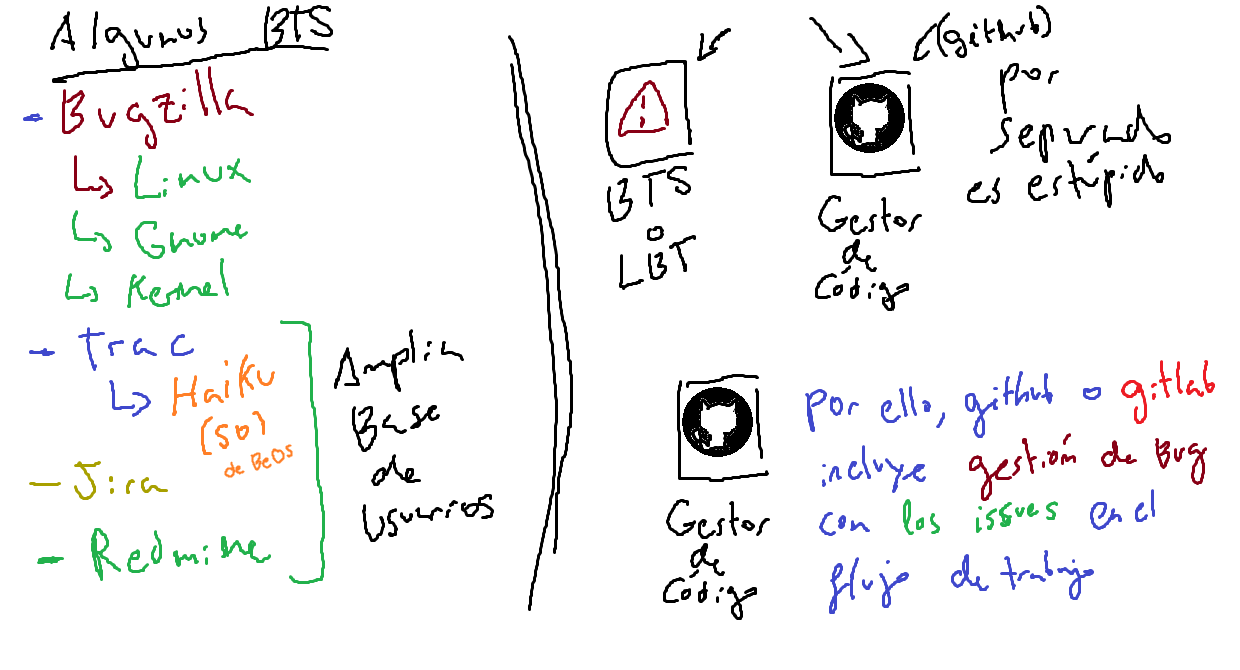 Algunos BTS
- Bugzilla
↳ Linux
↳ Gnome
↳ Kernel
- Trac
↳ Haiku
(SO)
de BeOs
- Jira
- Redmine
Amplia
Base
de
Usuarios
BTS
o
LBT
(github)
Gestor
de
Código
por
separado
es estúpido
Gestor
de
Código
Por ello, github o gitlab
incluye gestión de Bug
con los issues en el
flujo de trabajo